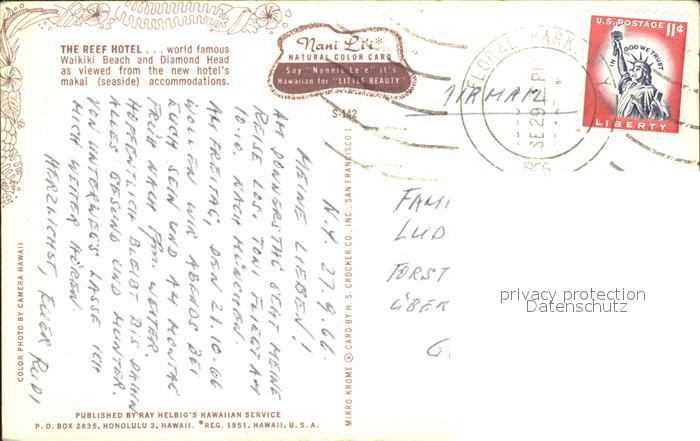 THE REEF HOTEL . . . world famous
Waikiki Beach and Diamond Head
as viewed from the new hotel's
makai (seaside) accommodations.
Nani Li'i*
NATURAL COLOR CARD
Say "Nonnie Le'e" it's
Hawaiian for "LITTLE BEAUTY"
S-142
AIRMAIL
FLORAL PARK
SE 29
PM
1966
U.S. POSTAGE 11¢
IN GOD WE TRUST
LIBERTY
N.Y. 27.9.66.
MEINE LIEBEN!
AM DONNERSTAG GEHT MEINE
REISE LOS. TONI FLIEGT AM
10.10. NACH MÜNCHEN.
AM FREITAG, DEN 21.10.66
WOLLEN WIR ABENDS BEI
EUCH SEIN UND AM MONTAG
FRÜH NACH WEITER.
HOFFENTLICH BLEIBT BIS DAHIN
ALLES GESUND UND MUNTER.
VON UNTERWEGS LASSE ICH
MICH WEITER HÖREN.
HERZLICHST, EUER RUDI
FAMI
LUD
FORST
ÜBER
G
privacy protection
Datenschutz
COLOR PHOTO BY CAMERA HAWAII
MIRRO KROME ® CARD BY H. S. CROCKER CO., INC. SAN FRANCISCO 1
PUBLISHED BY RAY HELBIG'S HAWAIIAN SERVICE
P. O. BOX 2835, HONOLULU 3, HAWAII. *REG. 1951, HAWAII, U. S. A.